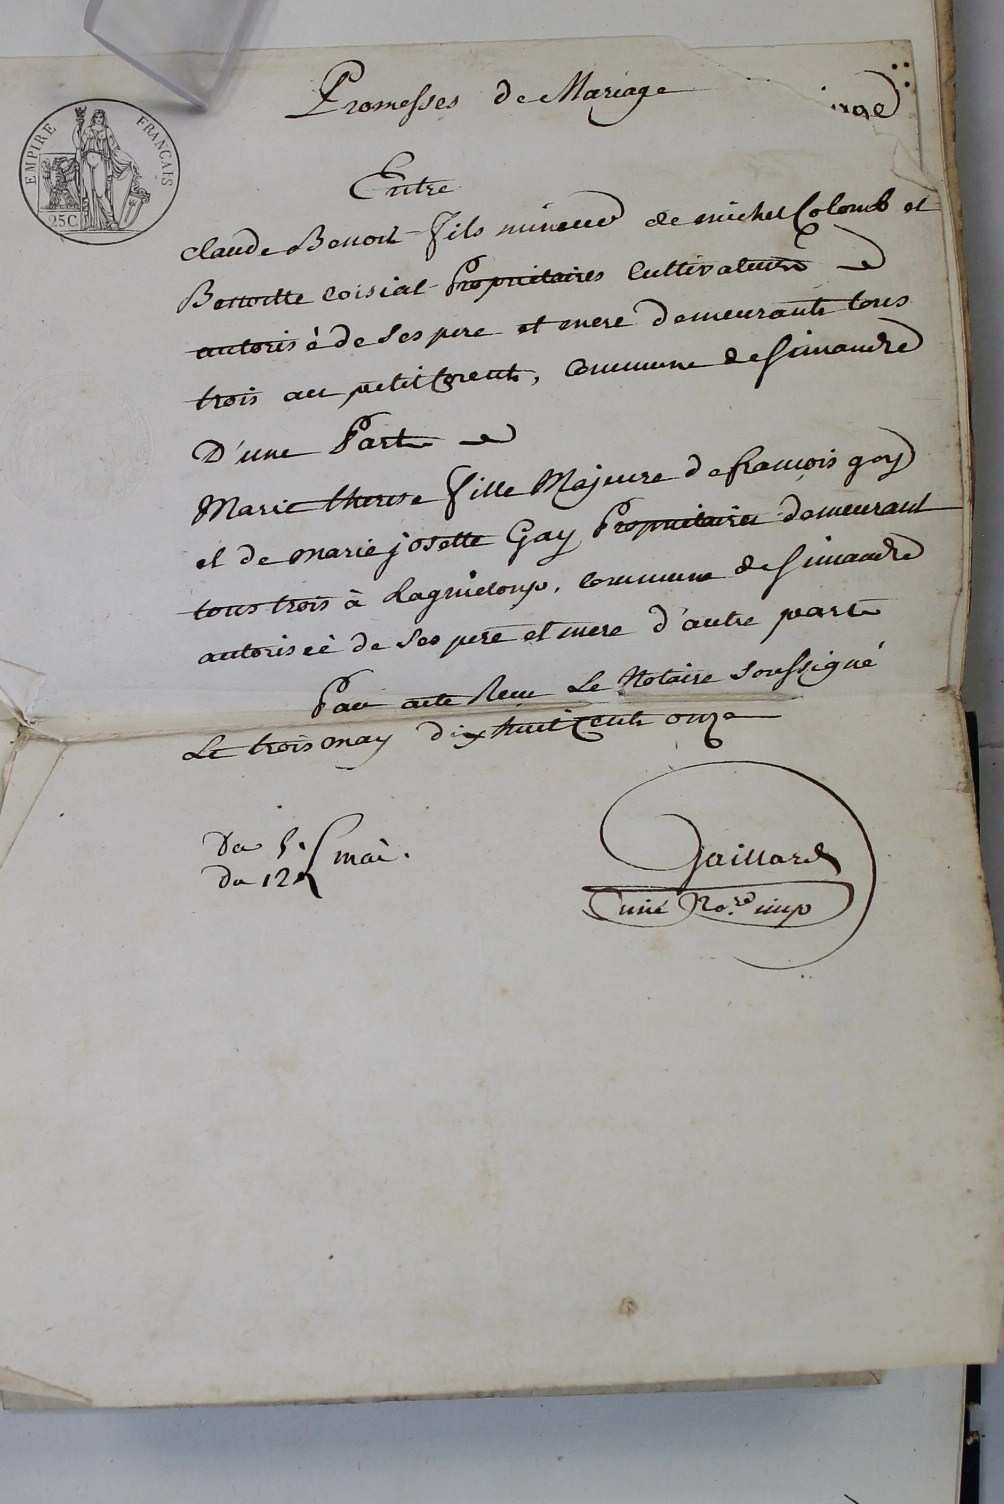 Promesses de Mariage
EMPIRE FRANÇAIS
25C
Entre
claude Benoit fils mineur de michel Colomb et
Benoitte coisiat Propriétaires cultivateurs
autorisé de ses pere et mere demeurants tous
trois au petit Corent, commune de Simandre
D'une Part
Marie therese fille Majeure de françois gay
et de marie josette Gay Propriétaires demeurant
tous trois à Ragnieloup, commune de Simandre
autorisée de ses pere et mere d'autre part
Par acte Recu Le Notaire soussigné
Le trois may dix huit Cents onze
Du 5.
Du 12 mai.
Gaillard
No.re imp